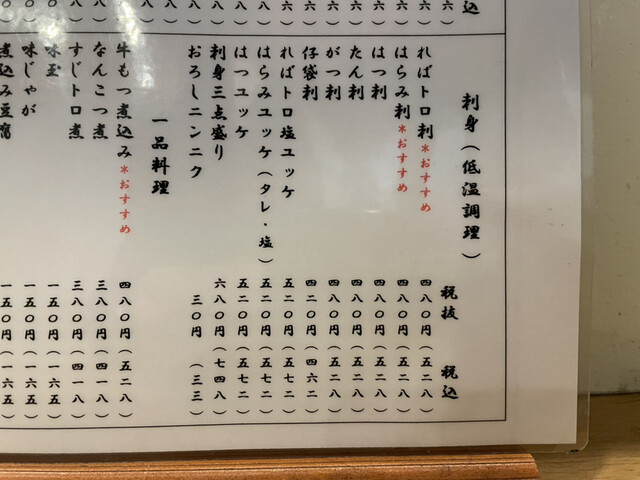 刺身(低温調理) 税抜 税込
ればトロ刺*おすすめ 四八〇円(五二八)
はらみ刺*おすすめ 四八〇円(五二八)
はつ刺 四八〇円(五二八)
たん刺 四八〇円(五二八)
がつ刺 四八〇円(五二八)
仔袋刺 四二〇円(四六二)
ればトロ塩ユッケ 五二〇円(五七二)
はらみユッケ(タレ・塩) 五二〇円(五七二)
はつユッケ 五二〇円(五七二)
刺身三点盛り 六八〇円(七四八)
おろしニンニク 三〇円(三三)
一品料理
牛もつ煮込み*おすすめ 四八〇円(五二八)
なんこつ煮 三八〇円(四一八)
すじトロ煮 三八〇円(四一八)
味玉 一五〇円(一六五)
味じゃが 一五〇円(一六五)
煮込み豆腐 一五〇円(一六五)